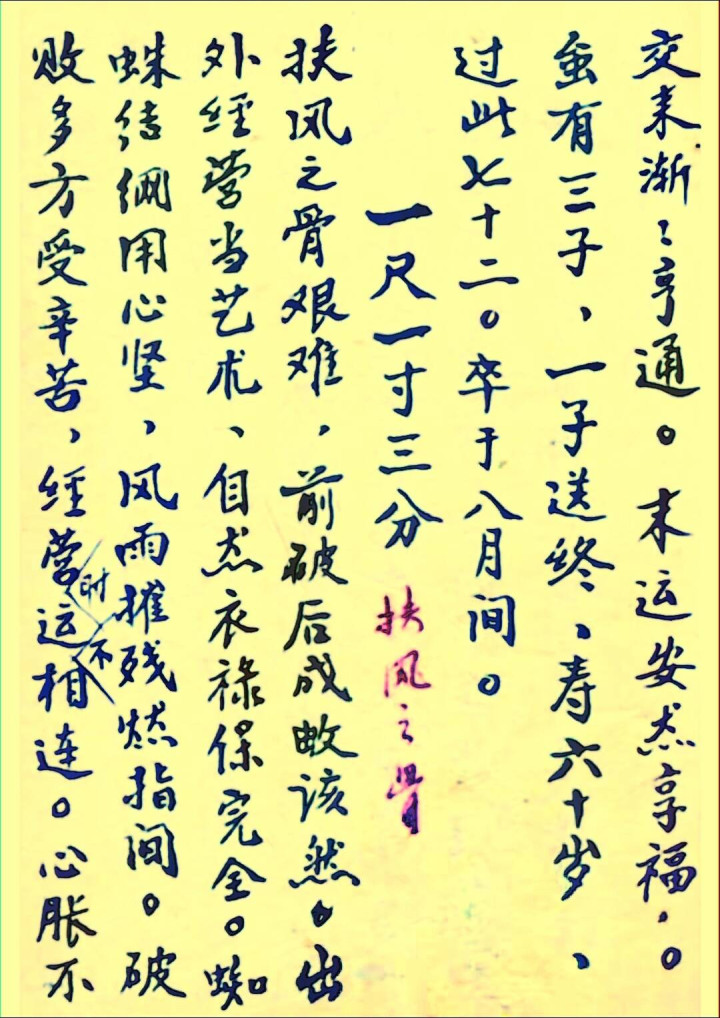 交来渐々亨通。末运安态享福。
虽有三子、一子送终、寿六十岁、
过此七十二。卒于八月间。
一尺一寸三分 扶风之骨
扶风之骨艰难，前破后成数该然。出
外经营当艺术、自态衣禄保完全。蜘
蛛结网用心坚，风雨摧残燃指间。破
败多方受辛苦，经营时运不相连。心胀不